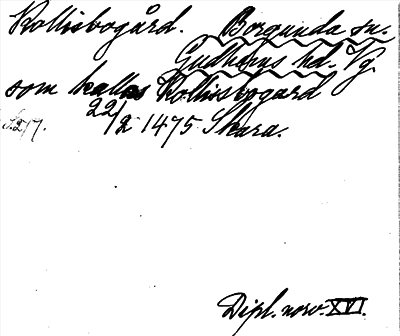 Kollisbogård. Borgunda sn.
Gudhems hd. Vg.
som kallas Kollisbogard
22/2 1475 Skara.
S. 217.
Dipl. norv. XVI.